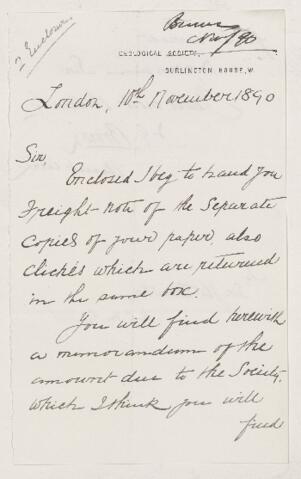 2 Enclosures
Nov/90
GEOLOGICAL SOCIETY,
BURLINGTON HOUSE, W.
London, 10th November 1890
Sir
Enclosed I beg to hand you
Freight-note of the Separate
Copies of your paper, also
Clichés which are returned
in the same box.
You will find herewith
a memorandum of the
amount due to the Society,
which I think you will
find